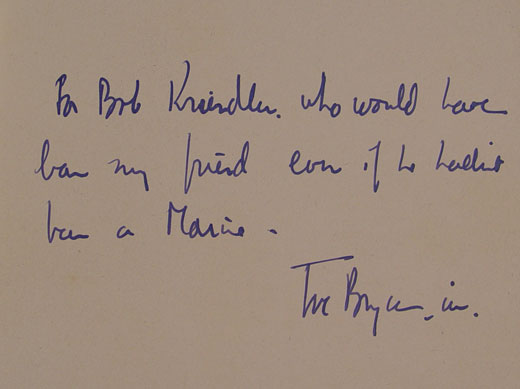 For Bob Kriendler. who would have
been my friend even if he hadn't
been a Marine.
Ivar Bryce